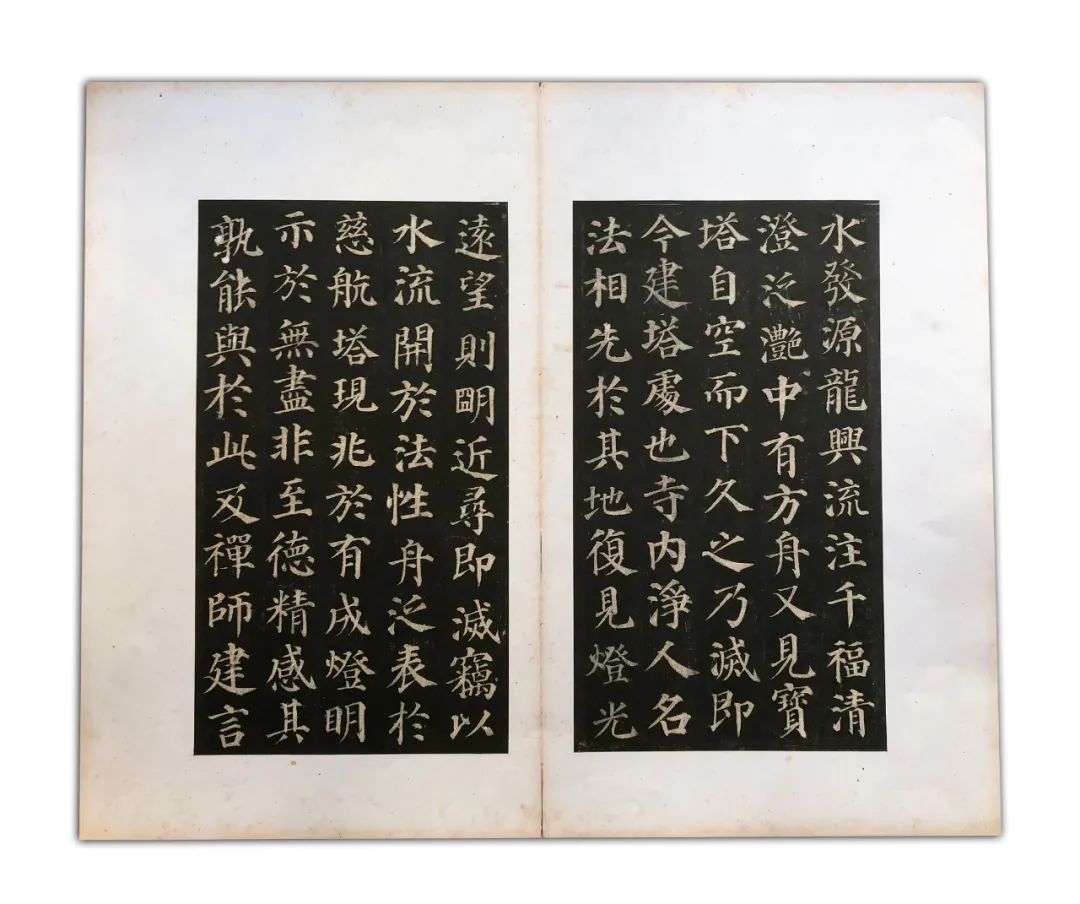 水發源龍興流注千福清
澄泛灔中有方舟又見寶
塔自空而下久之乃滅即
今建塔處也寺內淨人名
法相先於其地復見燈光
遠望則明近尋即滅竊以
水流開於法性舟泛表於
慈航塔現兆於有成燈明
示於無盡非至德精感其
孰能與於此及禪師建言